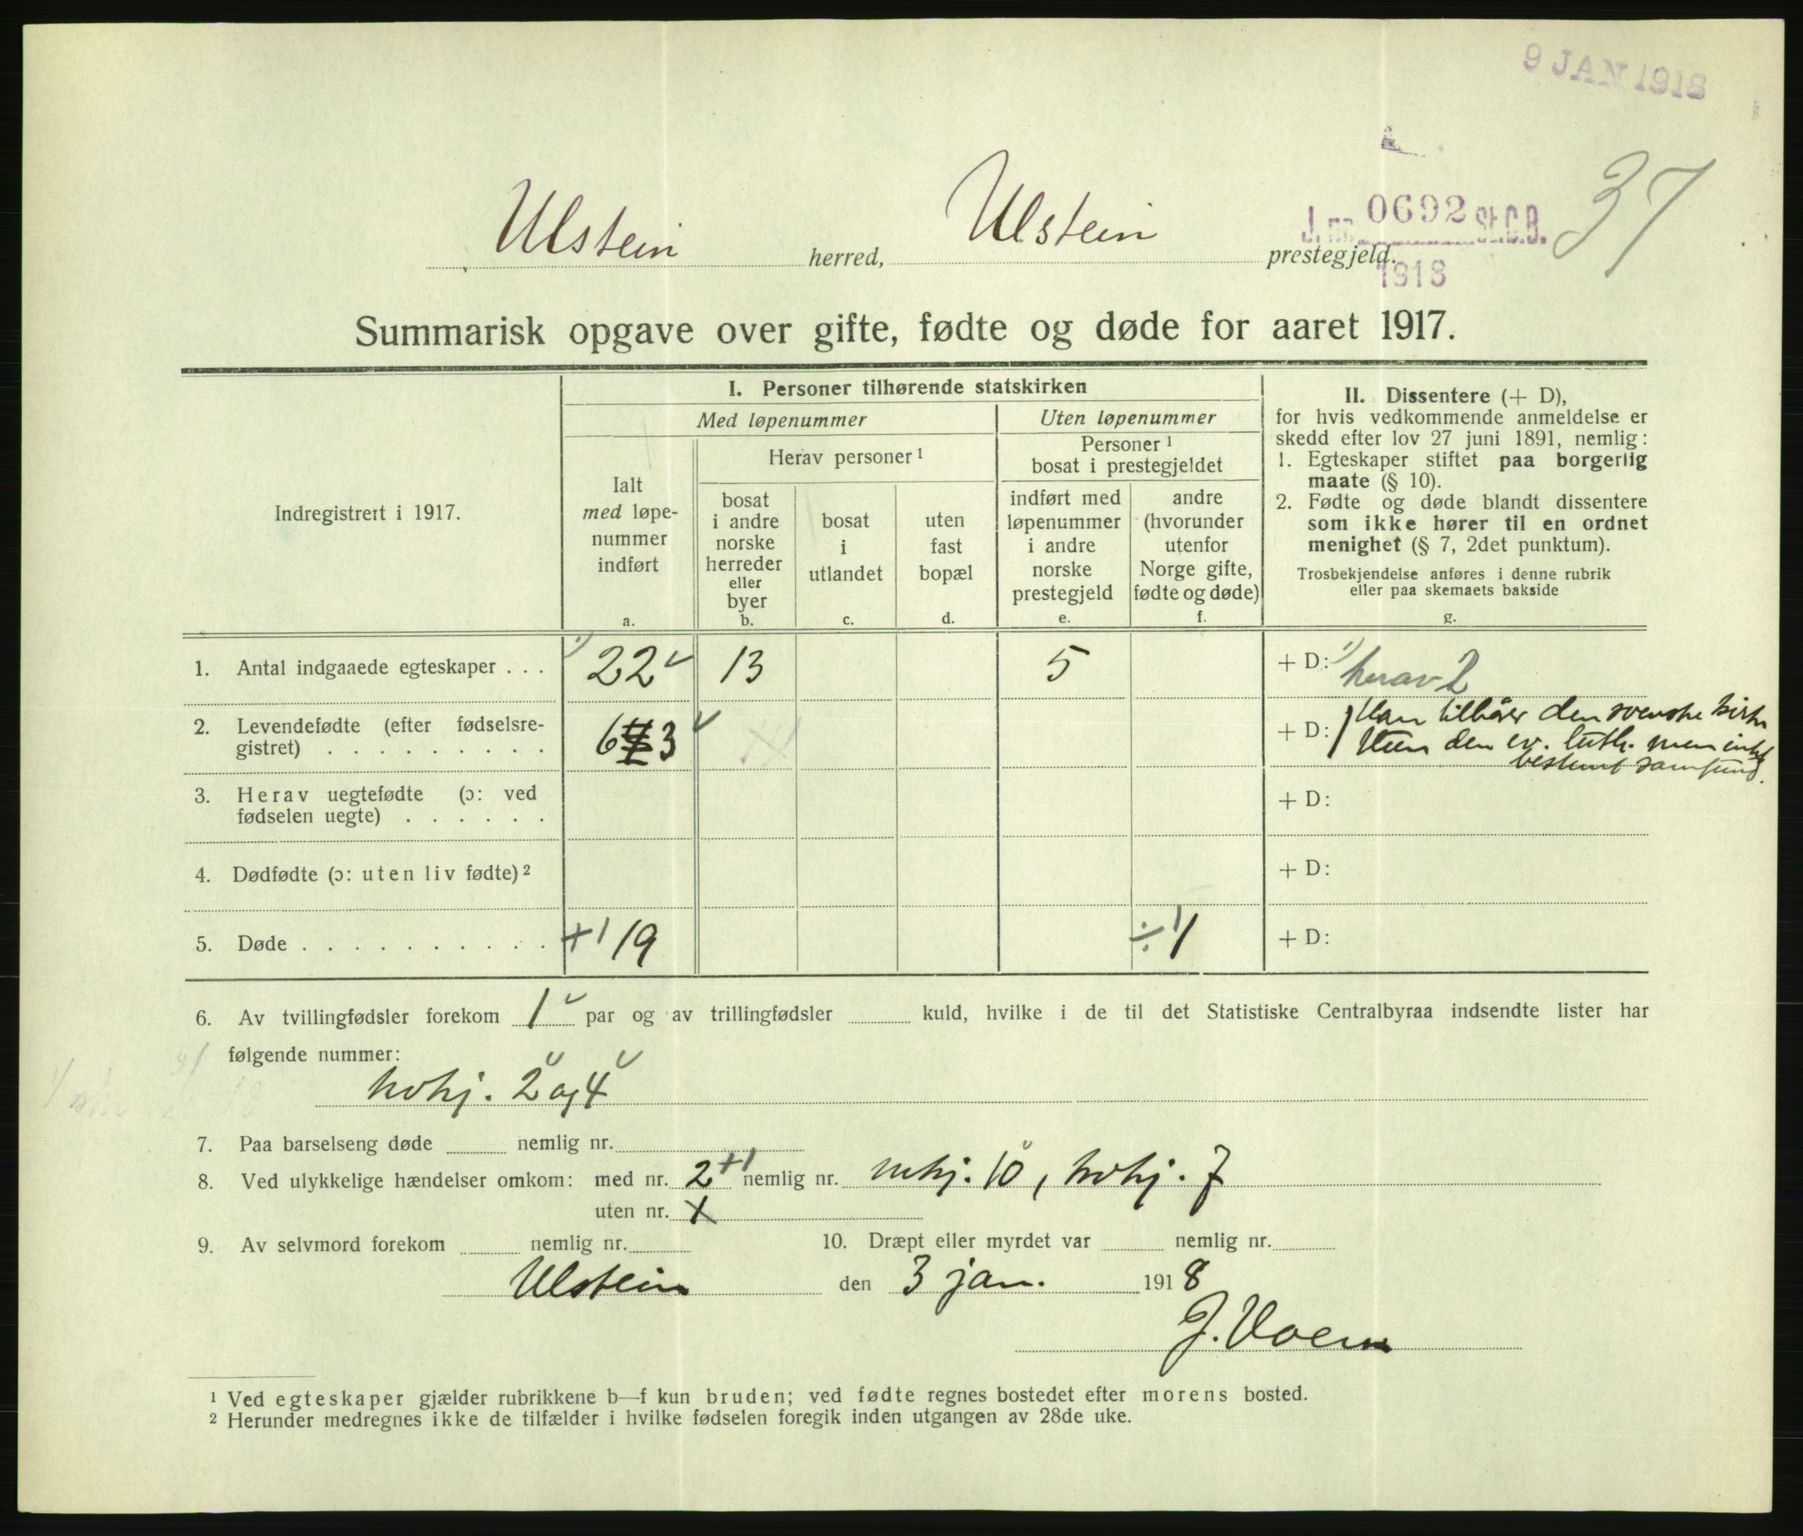 9 JAN 1918
Ulstein herred, Ulstein prestegjeld.
J. nr. 0692 St.C.B.
1918
37
Summarisk opgave over gifte, fødte og døde for aaret 1917.
Indregistrert i 1917.
I. Personer tilhørende statskirken
Med løpenummer
Uten løpenummer
Ialt
med løpe-
nummer
indført
a.
Herav personer 1
bosat
i andre
norske
herreder
eller
byer
b.
bosat
i
utlandet
c.
uten
fast
bopæl
d.
Personer 1
bosat i prestegjeldet
indført med
løpenummer
i andre
norske
prestegjeld
e.
andre
(hvorunder
utenfor
Norge gifte,
fødte og døde)
f.
II. Dissentere (+ D),
for hvis vedkommende anmeldelse er
skedd efter lov 27 juni 1891, nemlig:
1. Egteskaper stiftet paa borgerlig
maate (§ 10).
2. Fødte og døde blandt dissentere
som ikke hører til en ordnet
menighet (§ 7, 2det punktum).
Trosbekjendelse anføres i denne rubrik
eller paa skemaets bakside
g.
1. Antal indgaaede egteskaper . . . 1) 22 13 5 + D: 1) herav 2
2. Levendefødte (efter fødselsre-
gistret) . . . . . . . . . 63 + D: Han tilhører den svenske kirke
Hun den ev. luth. men intet
bestemt samfund.
3. Herav uegtefødte (ɔ: ved
fødselen uegte) . . . . . . + D:
4. Dødfødte (ɔ: uten liv fødte) 2 + D:
5. Døde . . . . . . . . . . +1 19 ÷1 1 + D:
6. Av tvillingfødsler forekom 1 par og av trillingfødsler kuld, hvilke i de til det Statistiske Centralbyraa indsendte lister har
følgende nummer:
kvkj. 2 og 4
7. Paa barselseng døde nemlig nr.
8. Ved ulykkelige hændelser omkom: med nr. 2 +1 nemlig nr. mkj. 10, kvkj. 7
uten nr. 1
9. Av selvmord forekom nemlig nr. 10. Dræpt eller myrdet var nemlig nr.
Ulstein den 3 jan. 1918
J. Voern
1 Ved egteskaper gjælder rubrikkene b—f kun bruden; ved fødte regnes bostedet efter morens bosted.
2 Herunder medregnes ikke de tilfælder i hvilke fødselen foregik inden utgangen av 28de uke.